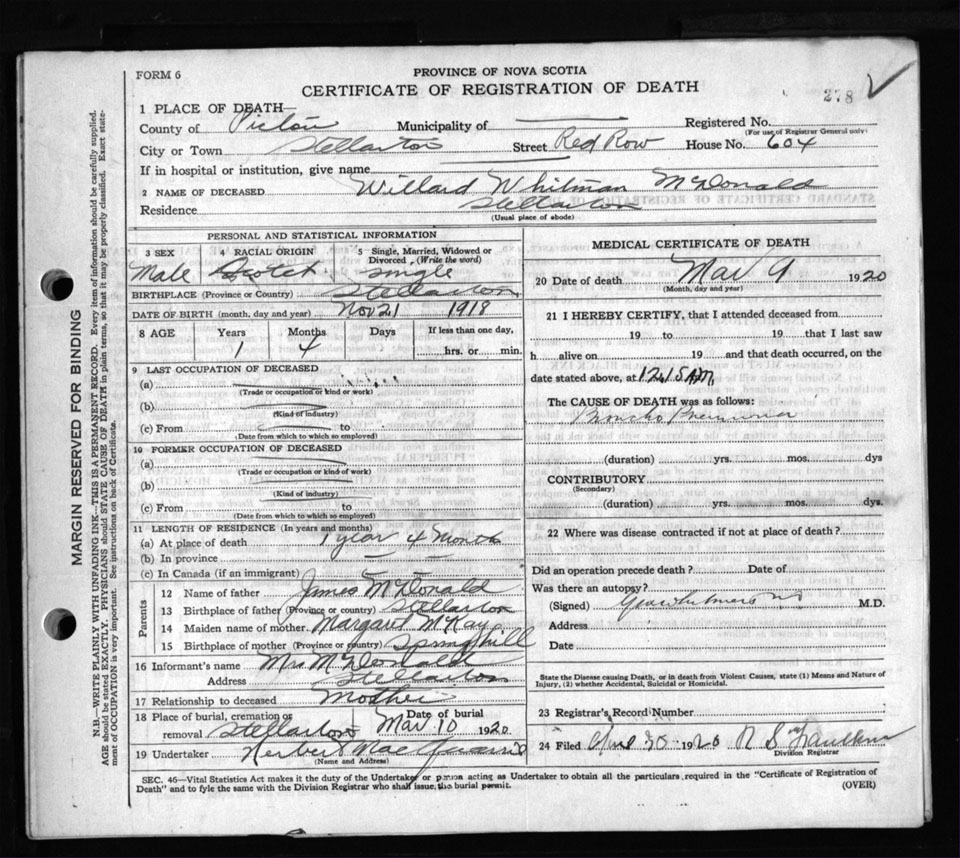 PROVINCE OF NOVA SCOTIA
FORM 6
CERTIFICATE OF REGISTRATION OF DEATH
278
1 PLACE OF DEATH—
County of Pictou Municipality of Registered No.
(For use of Registrar General only)
City or Town Stellarton Street Red Row House No. 604
If in hospital or institution, give name
2 NAME OF DECEASED Willard Whitman McDonald
Residence Stellarton
(Usual place of abode)
PERSONAL AND STATISTICAL INFORMATION
3 SEX 4 RACIAL ORIGIN 5 Single, Married, Widowed or Divorced (Write the word)
Male Scotch single
BIRTHPLACE (Province or Country) Stellarton
DATE OF BIRTH (month, day and year) Nov 21 1918
8 AGE Years Months Days If less than one day,
1 4 hrs. or min.
9 LAST OCCUPATION OF DECEASED
(a)
(Trade or occupation or kind or work)
(b)
(Kind of industry)
(c) From to
(Date from which to which so employed)
10 FORMER OCCUPATION OF DECEASED
(a)
(Trade or occupation or kind of work)
(b)
(Kind of industry)
(c) From to
(Date from which to which so employed)
11 LENGTH OF RESIDENCE (In years and months)
(a) At place of death 1 year 4 Months
(b) In province
(c) In Canada (if an immigrant)
Parents
12 Name of father James McDonald
13 Birthplace of father (Province or country) Stellarton
14 Maiden name of mother Margaret McKay
15 Birthplace of mother (Province or country) Springhill
16 Informant's name Mrs McDonald
Address Stellarton
17 Relationship to deceased Mother
18 Place of burial, cremation or removal Stellarton Date of burial Mar 10 1920
19 Undertaker Herbert
(Name and Address)
MEDICAL CERTIFICATE OF DEATH
20 Date of death Mar 9 1920
(Month, day and year)
21 I HEREBY CERTIFY, that I attended deceased from
19 to 19 that I last saw
h alive on 19 and that death occurred, on the
date stated above, at 12.15 AM
The CAUSE OF DEATH was as follows:
Broncho Pneumonia
(duration) yrs. mos. dys
CONTRIBUTORY
(Secondary)
(duration) yrs. mos. dys.
22 Where was disease contracted if not at place of death?
Did an operation precede death? Date of
Was there an autopsy?
(Signed) M.D.
Address
Date
State the Disease causing Death, or in death from Violent Causes, state (1) Means and Nature of Injury, (2) whether Accidental, Suicidal or Homicidal.
23 Registrar's Record Number
24 Filed 30 1920 R S
Division Registrar
SEC. 46—Vital Statistics Act makes it the duty of the Undertaker or person acting as Undertaker to obtain all the particulars required in the "Certificate of Registration of
Death" and to fyle the same with the Division Registrar who shall issue the burial permit. (OVER)
MARGIN RESERVED FOR BINDING
N.B.—WRITE PLAINLY WITH UNFADING INK—THIS IS A PERMANENT RECORD. Every item of information should be carefully supplied.
AGE should be stated EXACTLY. PHYSICIANS should STATE CAUSE OF DEATH in plain terms, so that it may be properly classified. Exact state-
ment of OCCUPATION is very important. See instructions on back of Certificate.